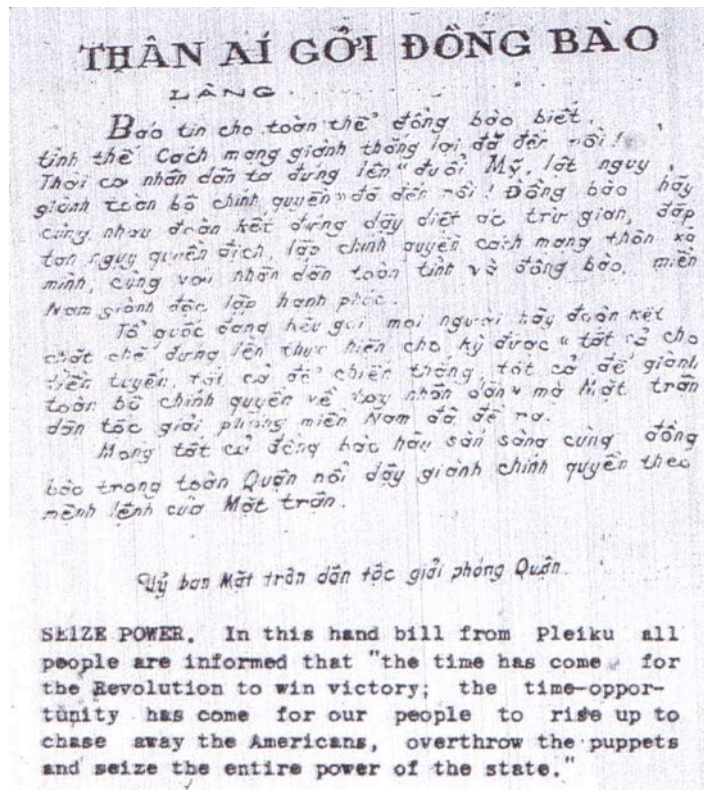 THÂN ÁI GỞI ĐỒNG BÀO
LÀNG
Báo tin cho toàn thể đồng bào biết.
tình thế Cách mạng giành thắng lợi đã đến rồi!
Thời cơ nhân dân ta đứng lên "đuổi Mỹ, lật ngụy,
giành toàn bộ chính quyền" đã đến rồi! Đồng bào hãy
cùng nhau đoàn kết đứng dậy diệt ác trừ gian, đập
tan ngụy quyền địch, lập chính quyền cách mạng thôn xã
mình, cùng với nhân dân toàn tỉnh và đồng bào, miền
Nam giành độc lập hạnh phúc.
Tổ quốc đang kêu gọi mọi người hãy đoàn kết
chặt chẽ đứng lên thực hiện cho kỳ được "tất cả cho
tiền tuyến, tất cả để chiến thắng, tất cả để giành
toàn bộ chính quyền về tay nhân dân" mà Mặt trận
dân tộc giải phóng miền Nam đã đề ra.
Mong tất cả đồng bào hãy sẵn sàng cùng đồng
bào trong toàn Quận nổi dậy giành chính quyền theo
mệnh lệnh của Mặt trận.
Uỷ ban Mặt trận dân tộc giải phóng Quận
SEIZE POWER. In this hand bill from Pleiku all
people are informed that "the time has come for
the Revolution to win victory; the time-oppor-
tunity has come for our people to rise up to
chase away the Americans, overthrow the puppets
and seize the entire power of the state."